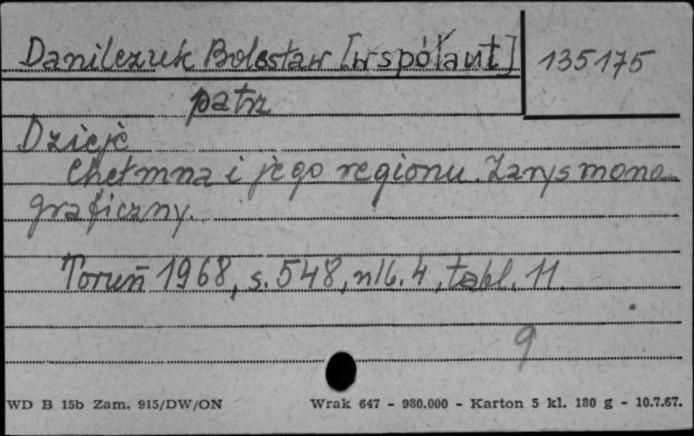 Danilczuk Bolesław [współaut.] 135175
patrz
Dzieje
Chełmna i jego regionu. Zarys mono-
graficzny.
Toruń 1968, s. 548, nlb. 4, tabl. 11.
9
WD B 15b Zam. 915/DW/ON Wrak 647 - 980.000 - Karton 5 kl. 180 g - 10.7.67.